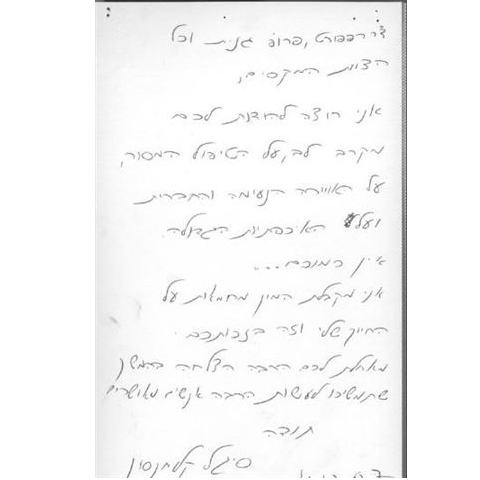 ד"ר רפפורט, פרופ' גנית וכל
הצוות המקסים,
אני רוצה להודות לכם
מקרב לב, על הטיפול המסור,
על האווירה הנעימה והחברית
ועל האיכפתיות הגדולה.
אין כמוכם...
אני מקבלת המון מחמאות על
החיוך שלי וזה בזכותכם.
מאחלת לכם הרבה הצלחה בהמשך
שתמשיכו לעשות הרבה אנשים מאושרים
תודה
סיגל